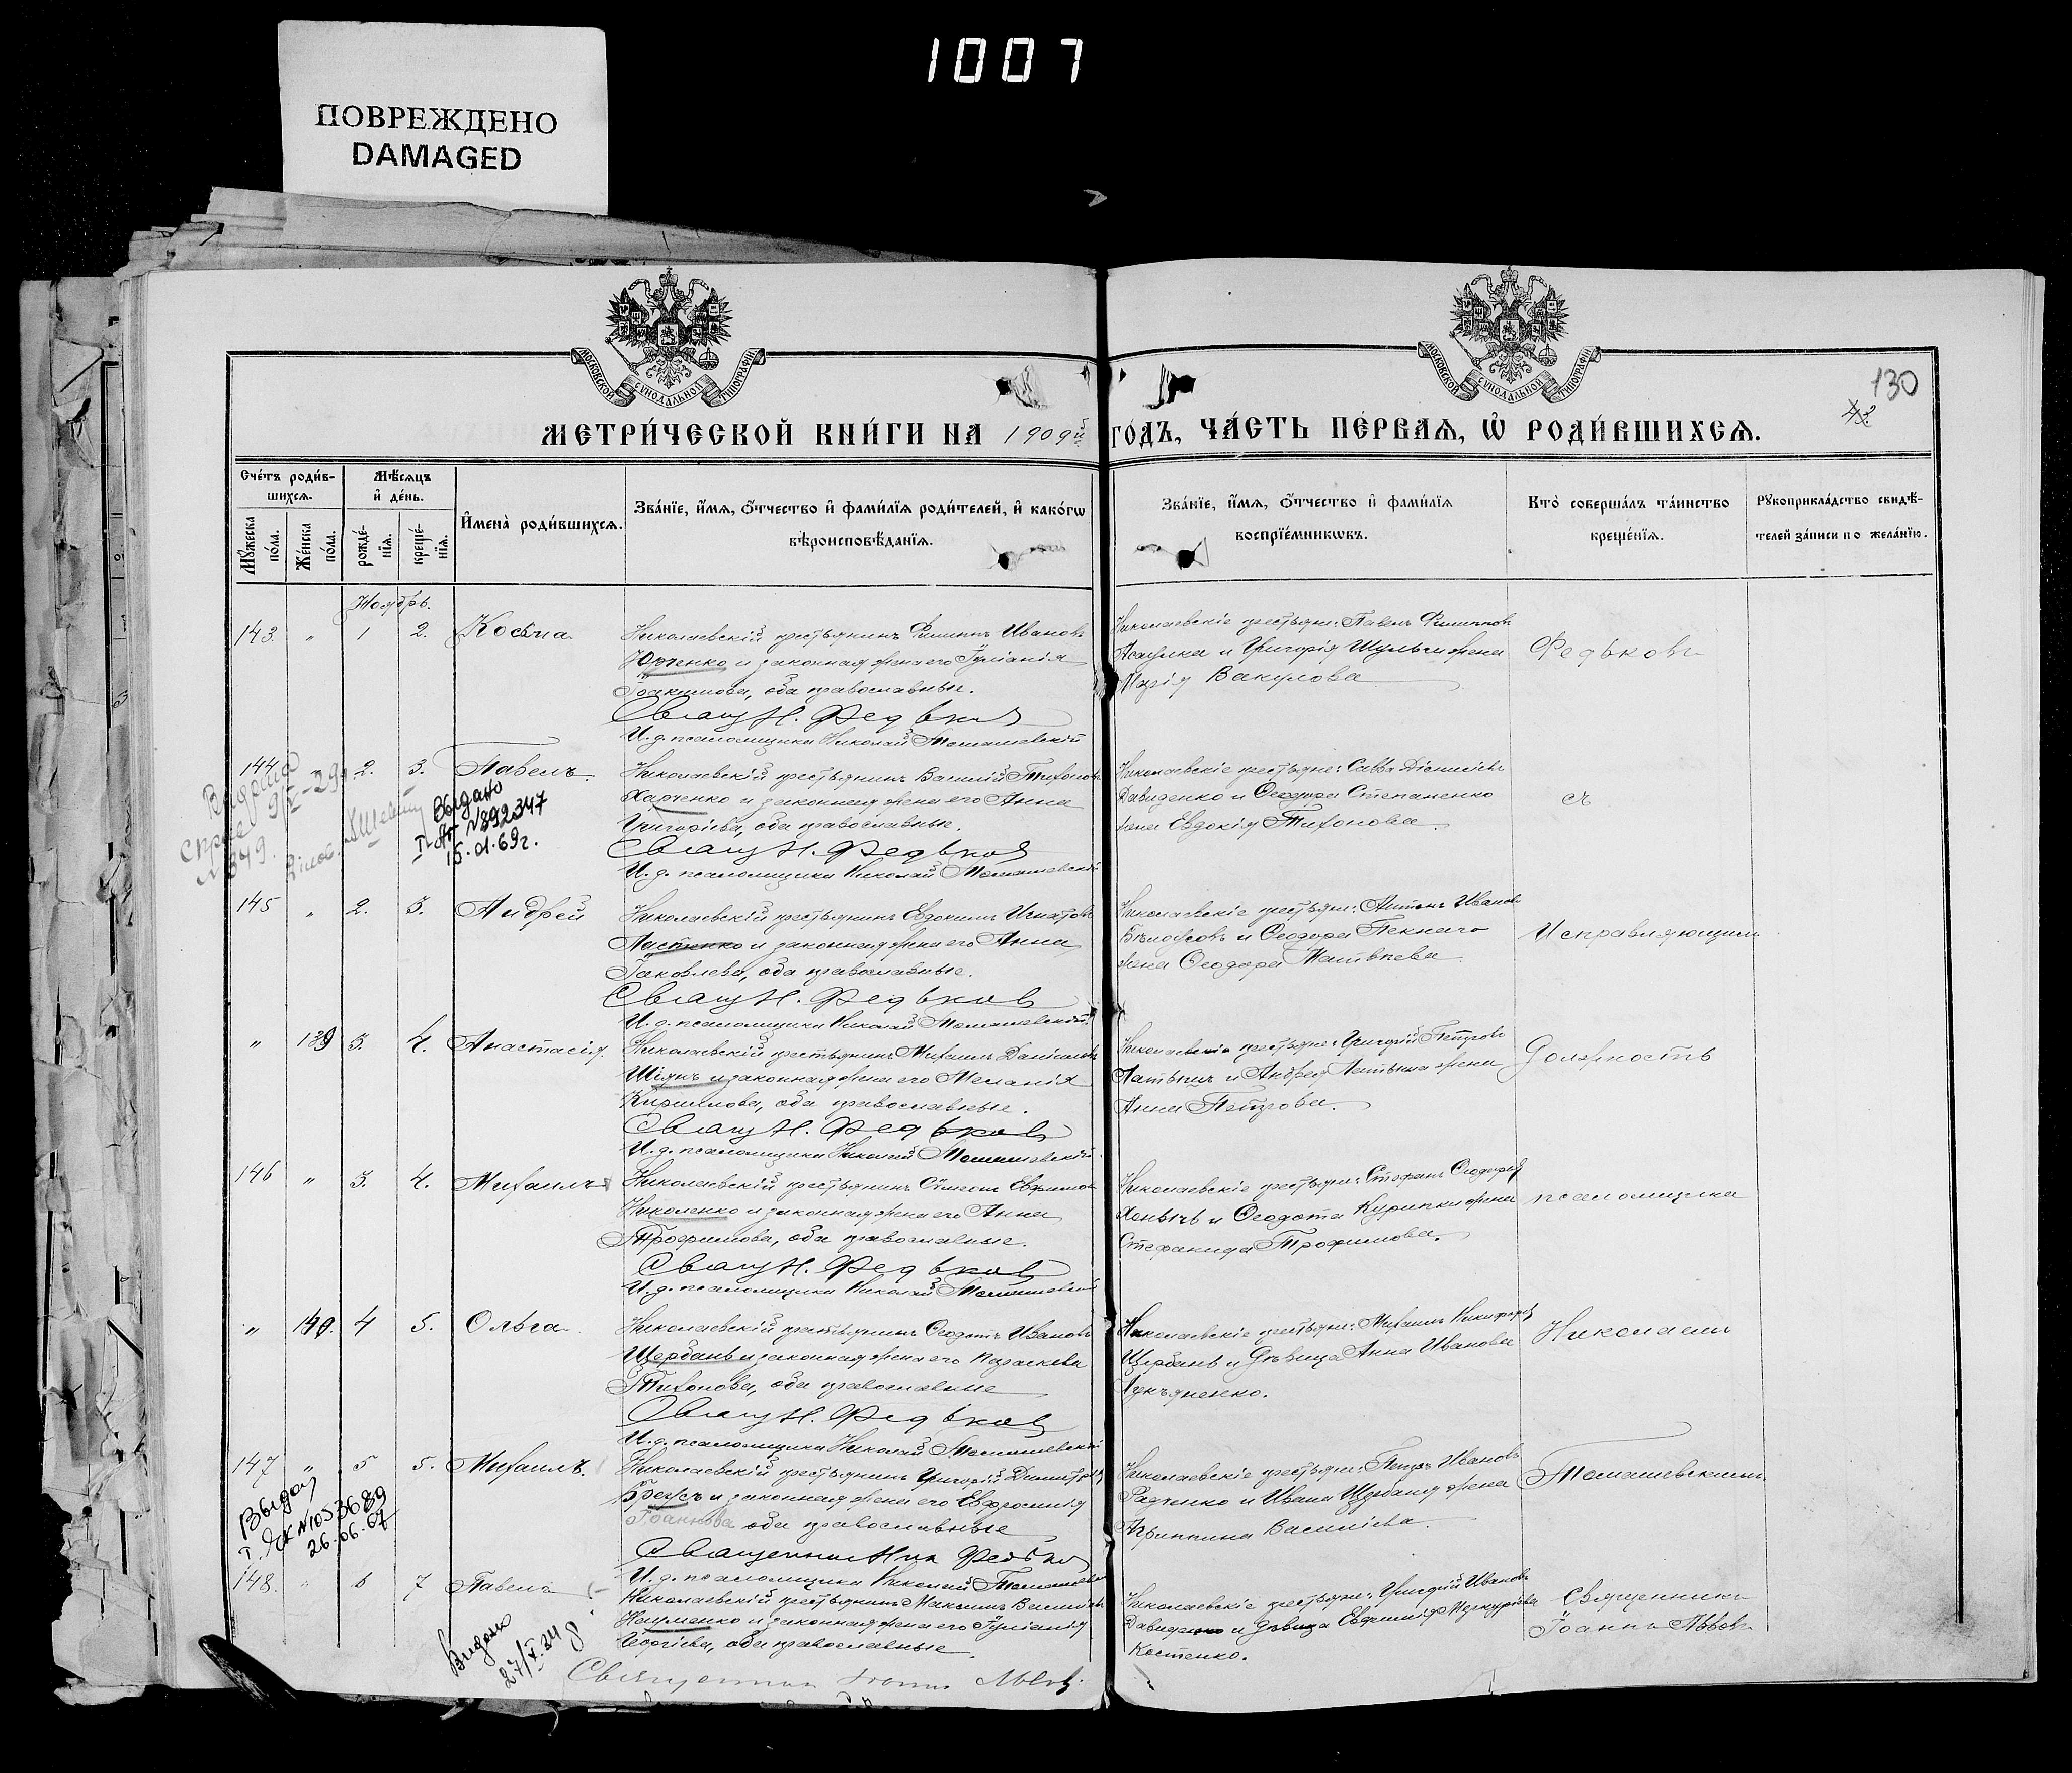 1007
ПОВРЕЖДЕНО
DAMAGED
МОСКОВСКОЙ СѴНОДАЛЬНОЙ ТИПОГРАФІИ
МОСКОВСКОЙ СѴНОДАЛЬНОЙ ТИПОГРАФІИ
130
МЕТРИ́ЧЕСКОЙ КНИ́ГИ НА 1909й ГО́ДЪ, ЧА́СТЬ ПЕ́РВАЯ, Ѡ҆ РОДИ́ВШИХСЯ.
Сче́тъ роди́вшихся.
Мѣ́сяцъ и҆ де́нь.
Мꙋ́жеска по́ла.
Же́нска по́ла.
рожде́нїя.
креще́нїя.
И҆мена̀ роди́вшихся.
Зва́нїе, и҆́мя, ѻ҆́тчество и҆ фами́лїя роди́телей, и҆ како́гѡ
вѣроисповѣ́данїя.
Зва́нїе, и҆́мя, ѻ҆́тчество и҆ фами́лїя
воспрїе́мникѡвъ.
Кто̀ соверша́лъ та́инство
креще́нїя.
Рꙋкоприкла́дство свидѣ́-
телей за́писи по жела́нїю.
Ноябрь.
143. " 1 2. Косьма
Николаевскій крестьянинъ Филиппъ Ивановъ
Юрченко и законная жена его Іуліанія
Іоакимова, оба православные.
Свящ Н. Федьков
И. д. псаломщика Николай Томашевскій
Николаевскіе крестьяне: Павелъ Филипповъ
и Григорія Шульги жена
Марія Вакулова
Федьковъ
144 " 2. 3. Павелъ.
Николаевскій крестьянинъ Василій Тихоновъ
Харченко и законная жена его Анна
Григоріева, оба православные.
Свящ Н. Федьков
И. д. псаломщика Николай Томашевскій
Николаевскіе крестьяне: Савва Діонисіевъ
Давиденко и Ѳеодора Степаненко
жена Евдокія Тихонова.
съ
Выдано
N892347
15.01.69г.
145 " 2. 3. Андрей
Николаевскій крестьянинъ Евдокимъ Игнатовъ
Ластенко и законная жена его Анна
Іаковлева, оба православные.
Свящ Н. Федьков
И. д. псаломщика Николай Томашевскій
Николаевскіе крестьяне: Антонъ Ивановъ
Бѣлоусовъ и Ѳеодора Пекнаго
жена Ѳеодора Матвѣева
Исправляющимъ
" 139 3. 4. Анастасія.
Николаевскій крестьянинъ Михаилъ Даніиловъ
Шіянъ и законная жена его Меланія
Кириллова, оба православные.
Свящ Н. Федьков
И. д. псаломщика Николай Томашевскій
Николаевскіе крестьяне: Григорій Петровъ
Латышъ и Андрея Латыша жена
Анна Петрова.
Должность
146 " 3. 4. Михаилъ
Николаевскій крестьянинъ Сѵмеонъ Евфимовъ
Николенко и законная жена его Анна
Трофимова, оба православные.
Свящ Н. Федьков
И. д. псаломщика Николай Томашевскій
Николаевскіе крестьяне: Стефанъ Ѳеодоровъ
и Ѳеодота Курипки жена
Стефанида Трофимова.
псаломщика
" 140. 4 5. Ольга
Николаевскій крестьянинъ Ѳеодотъ Ивановъ
Щербань и законная жена его Параскева
Тихонова, оба православные
Свящ Н. Федьков
И. д. псаломщика Николай Томашевскій
Николаевскіе крестьяне: Михаилъ Никифоровъ
Щербань и дѣвица Анна Иванова
Лукьяненко.
Николаемъ
147 " 5 5. Михаилъ.
Николаевскій крестьянинъ Григорій Димитріевъ
и законная жена его Евфросинія
Іоаннова оба православные
Священник Ник Федьков
И. д. псаломщика Николай Томашевскій
Николаевскіе крестьяне: Петръ Ивановъ
Радченко и Ивана Щербаня жена
Агриппина Василіева.
Томашевскимъ.
Выдан
N1053689
26.06.67
148. " 6 7 Павелъ
Николаевскій крестьянинъ Максимъ Василіевъ
Науменко и законная жена его Іуліанія
Георгіева, оба православные.
Священник Іоанн Львов.
Николаевскіе крестьяне: Григорій Ивановъ
Давиденко и дѣвица Евфимія Меркуріева
Костенко.
Священникъ
Іоаннъ Львовъ
Видано
27/X.34